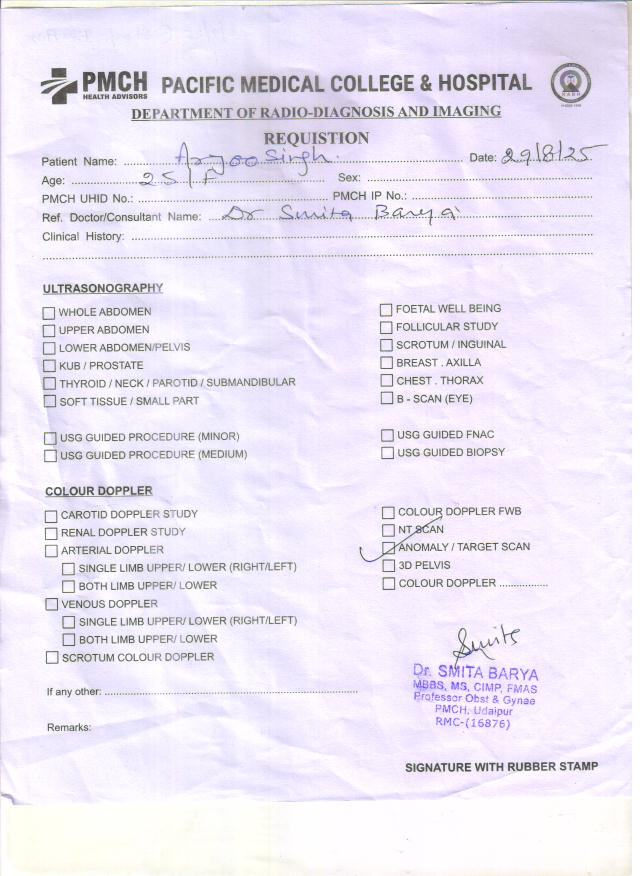 PMCH
HEALTH ADVISORS
PACIFIC MEDICAL COLLEGE & HOSPITAL
DEPARTMENT OF RADIO-DIAGNOSIS AND IMAGING
REQUISTION
Patient Name: Arjoo Singh. Date: 29/8/25
Age: 25/F Sex:
PMCH UHID No.: PMCH IP No.:
Ref. Doctor/Consultant Name: Dr Smita Barya
Clinical History:
ULTRASONOGRAPHY
WHOLE ABDOMEN
UPPER ABDOMEN
LOWER ABDOMEN/PELVIS
KUB / PROSTATE
THYROID / NECK / PAROTID / SUBMANDIBULAR
SOFT TISSUE / SMALL PART
USG GUIDED PROCEDURE (MINOR)
USG GUIDED PROCEDURE (MEDIUM)
FOETAL WELL BEING
FOLLICULAR STUDY
SCROTUM / INGUINAL
BREAST . AXILLA
CHEST . THORAX
B - SCAN (EYE)
USG GUIDED FNAC
USG GUIDED BIOPSY
COLOUR DOPPLER
CAROTID DOPPLER STUDY
RENAL DOPPLER STUDY
ARTERIAL DOPPLER
SINGLE LIMB UPPER/ LOWER (RIGHT/LEFT)
BOTH LIMB UPPER/ LOWER
VENOUS DOPPLER
SINGLE LIMB UPPER/ LOWER (RIGHT/LEFT)
BOTH LIMB UPPER/ LOWER
SCROTUM COLOUR DOPPLER
COLOUR DOPPLER FWB
NT SCAN
ANOMALY / TARGET SCAN
3D PELVIS
COLOUR DOPPLER ................
If any other:
Remarks:
Smita
Dr. SMITA BARYA
MBBS, MS, CIMP, FMAS
Professor Obst & Gynae
PMCH, Udaipur
RMC-(16876)
SIGNATURE WITH RUBBER STAMP